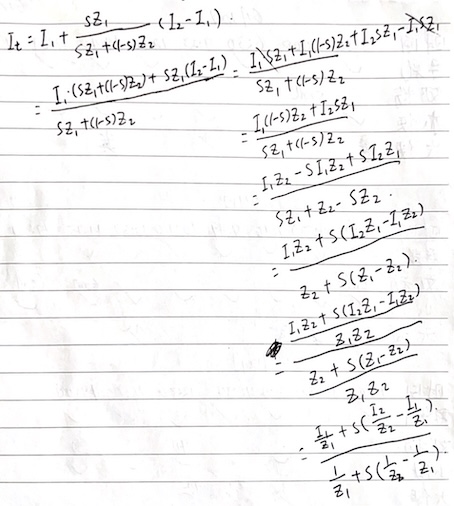 It = I₁ + SZ₁/(SZ₁+(1-S)Z₂) (I₂-I₁).
= (I₁·(SZ₁+(1-S)Z₂)+SZ₁(I₂-I₁))/(SZ₁+(1-S)Z₂) = (I₁SZ₁+I₁(1-S)Z₂+I₂SZ₁-I₁SZ₁)/(SZ₁+(1-S)Z₂)
= (I₁(1-S)Z₂+I₂SZ₁)/(SZ₁+(1-S)Z₂)
= (I₁Z₂-SI₁Z₂+SI₂Z₁)/(SZ₁+Z₂-SZ₂).
= (I₁Z₂+S(I₂Z₁-I₁Z₂))/(Z₂+S(Z₁-Z₂)).
= ((I₁Z₂+S(I₂Z₁-I₁Z₂))/(Z₁Z₂))/((Z₂+S(Z₁-Z₂))/(Z₁Z₂))
= (I₁/Z₁+S(I₂/Z₂-I₁/Z₁))/(1/Z₁+S(1/Z₂-1/Z₁)).